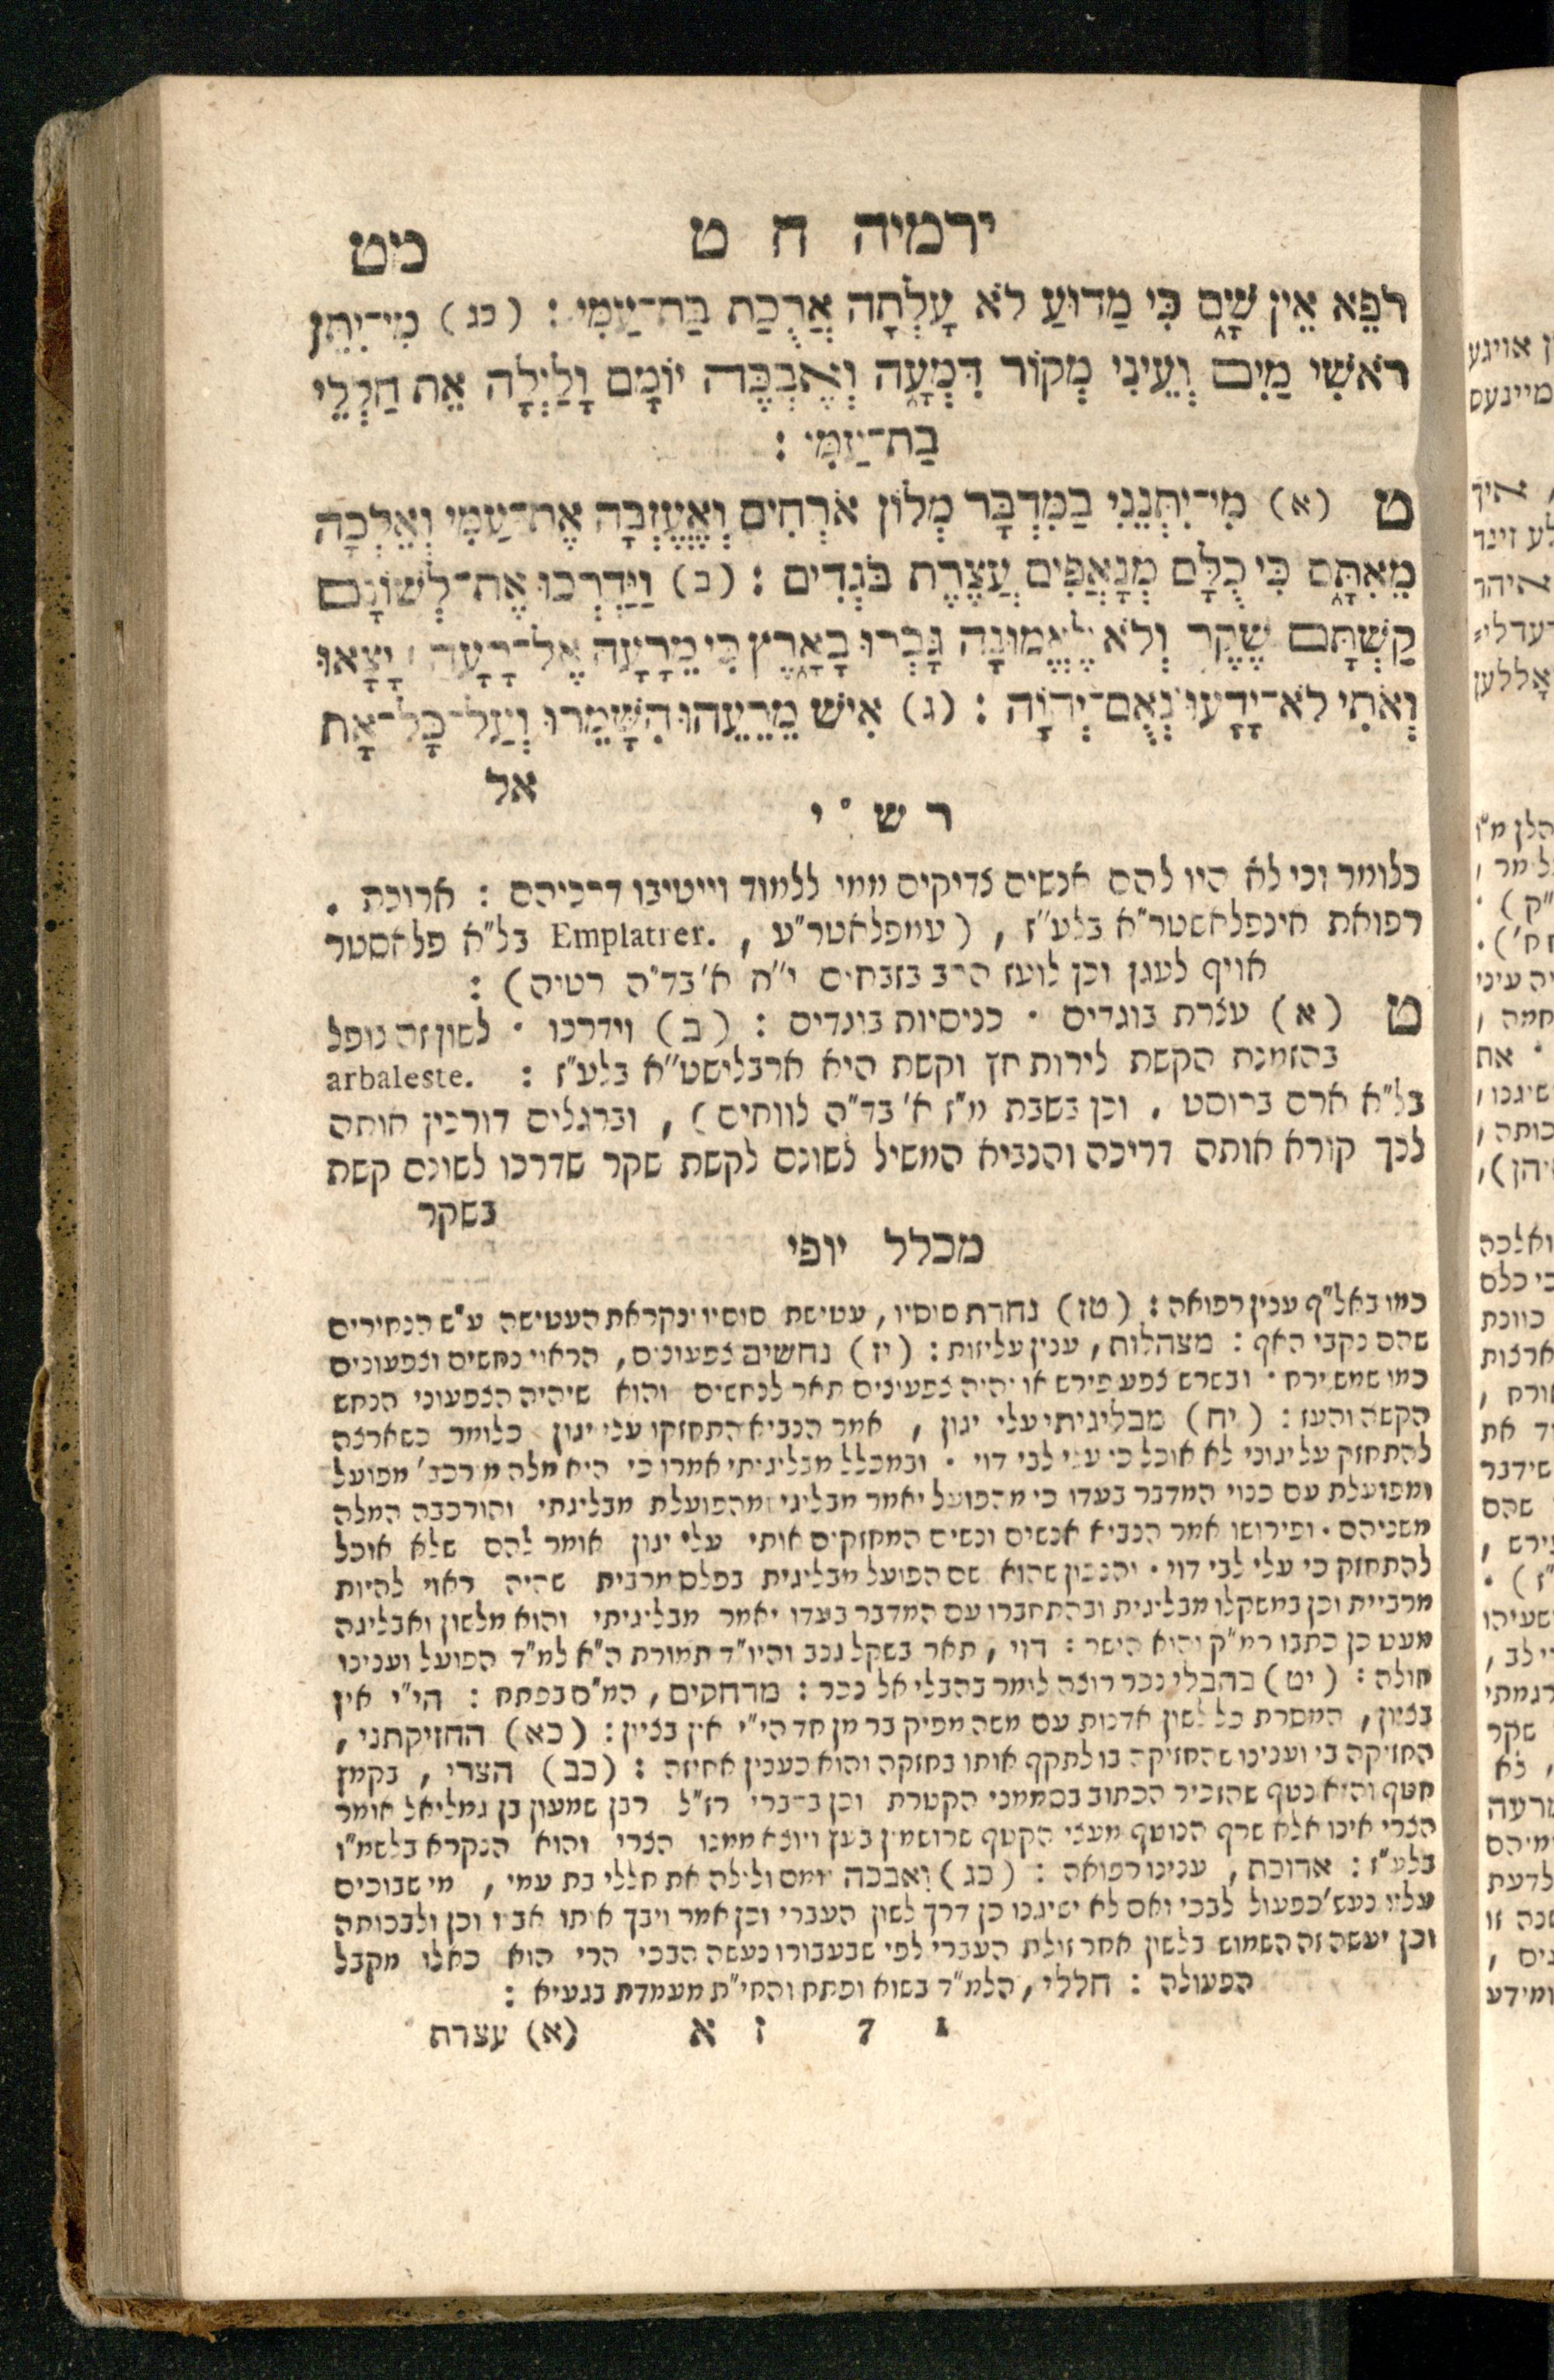 ירמיה ח ט מט
רֹפֵא אֵין שָׁם כִּי מַדּוּעַ לֹא עָלְתָה אֲרֻכַת בַּת־עַמִּי : (כג) מִי־יִתֵּן
רֹאשִׁי מַיִם וְעֵינִי מְקוֹר דִּמְעָה וְאֶבְכֶּה יוֹמָם וָלַיְלָה אֵת חַלְלֵי
בַת־עַמִּי :
ט (א) מִי־יִתְּנֵנִי בַמִּדְבָּר מְלוֹן אֹרְחִים וְאֶעֶזְבָה אֶת־עַמִּי וְאֵלְכָה
מֵאִתָּם כִּי כֻלָּם מְנָאֲפִים עֲצֶרֶת בֹּגְדִים : (ב) וַיַּדְרְכוּ אֶת־לְשׁוֹנָם
קַשְׁתָּם שֶׁקֶר וְלֹא לֶאֱמוּנָה גָּבְרוּ בָאָרֶץ כִּי מֵרָעָה אֶל־רָעָה יָצָאוּ
וְאֹתִי לֹא־יָדָעוּ נְאֻם־יְהוָֹה : (ג) אִישׁ מֵרֵעֵהוּ הִשָּׁמֵרוּ וְעַל־כָּל־אָח
אל
רש"י
כלומר וכי לא היו להם אנשים צדיקים ממי ללמוד וייטיבו דרכיהם : ארוכת .
רפואת אינפלאשטר"א בלע"ז , (עמפלאטר"ע , Emplatrer. בל"א פלאסטר
אויף לעגן וכן לועז הרב בזבחים י"ח א' בד"ה רטיה) :
ט (א) עצרת בוגדים . כניסיות בוגדים : (ב) וידרכו . לשון זה נופל
בהזמנת הקשת לירות חץ וקשת היא ארבלישט"א בלע"ז : arbaleste.
בל"א ארם ברוסט . וכן בשבת מ"ז א' בד"ה לווחים) , וברגלים דורכין אותה
לכך קורא אותה דריכה והנביא המשיל לשונם לקשת שקר שדרכו לשונם קשת
בשקר
מכלל יופי
כמו באל"ף ענין רפואה : (טז) נחרת סוסיו , עטישת סוסיו ונקראת העטישה ע"ש הנחירים
שהם נקבי האף : מצהלות , ענין עליזות : (יז) נחשים צפעונים , הראוי נחשים וצפעונים
כמו שמש ירח . ובשרש צפע פירש או יהיה צפעונים תאר לנחשים והוא שיהיה הצפעוני הנחש
הקשה והעז : (יח) מבליגיתי עלי יגון , אמר הנביא התחזקו עלי יגון כלומר כשארצה
להתחזק על יגוני לא אוכל כי עלי לבי דוי . ובמכלל מבליגיתי אמרו כי היא מלה מורכב' מפועל
ומפועלת עם כנוי המדבר בעדו כי מהפועל יאמר מבליגי ומהפועלת מבליגתי והורכבה המלה
משניהם . ופירושו אמר הנביא אנשים ונשים המחזקים אותי עלי יגון אומר להם שלא אוכל
להתחזק כי עלי לבי דוי . והנכון שהוא שם הפועל מבליגית בפלס מרבית שהיה ראוי להיות
מרביית וכן במשקלו מבליגית ובהתחברו עם המדבר בעדו יאמר מבליגיתי והוא מלשון ואבליגה
מעט כן כתבו רמ"ק והוא הישר : דוי , תאר בשקל גנב והיו"ד תמורת ה"א למ"ד הפועל וענינו
חולה : (יט) בהבלי נכר רוצה לומר בהבלי אל נכר : מרחקים , המ"ם בפתח : הי"י אין
בציון , המסרת כל לשון אדנות עם משה מפיק בר מן חד הי"י אין בציון : (כא) החזיקתני ,
החזיקה בי וענינו שהחזיקה בו לתקף אותו בחזקה והוא כענין אחיזה : (כב) הצרי , בקמץ
חטף והוא נטף שהזכיר הכתוב בסממני הקטרת וכן בדברי רז"ל רבן שמעון בן גמליאל אומר
הצרי אינו אלא שרף הנוטף מעצי הקטף שרושמין בעץ ויוצא ממנו הצרי והוא הנקרא בלשמ"ו
בלע"ז : ארוכת , ענינו רפואה : (כג) ואבכה יומם ולילה את חללי בת עמי , מי שבוכים
עליו נעש' כפעול לבכי ואם לא ישיגנו כן דרך לשון העברי וכן אמר ויבך אותו אביו וכן ולבכותה
וכן יעשה זה השמוש בלשון אחר זולת העברי לפי שבעבורו נעשה הבכי הרי הוא כאלו מקבל
הפעולה : חללי , הלמ"ד בשוא ופתח והחי"ת מעמדת בגעיא :
1 7 ז א (א) עצרת